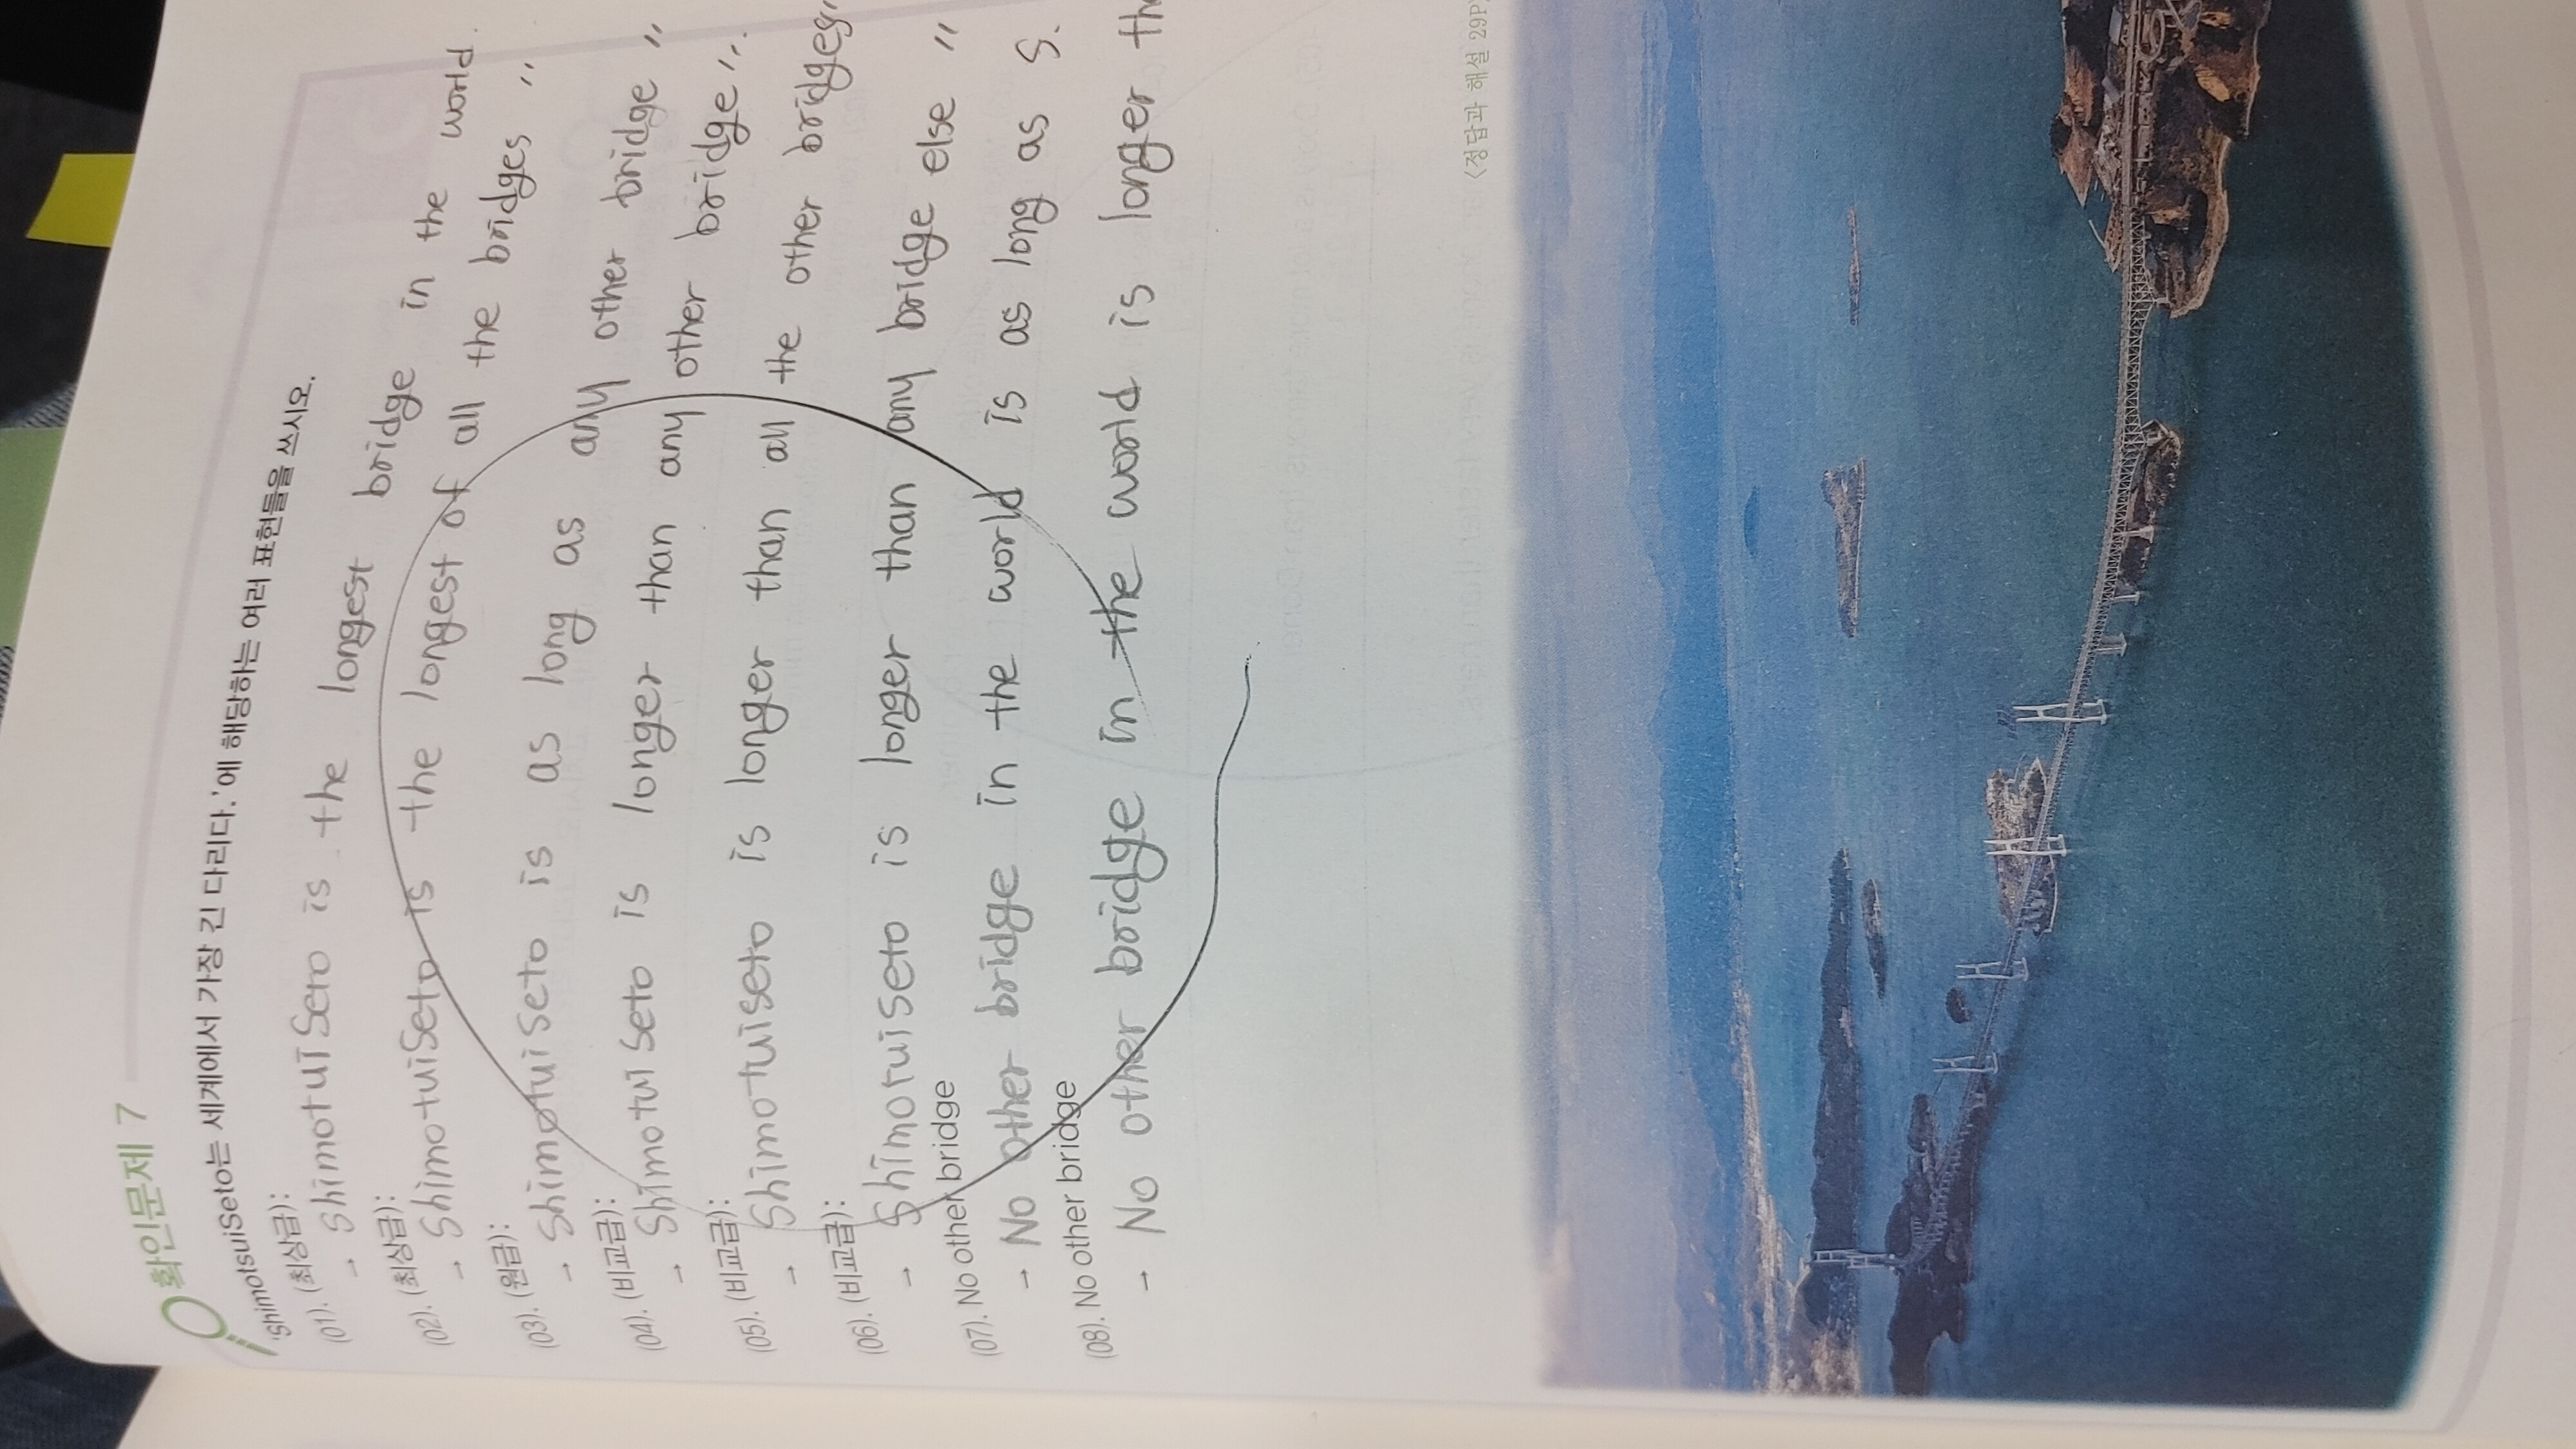 확인문제 7
'ShimotsuiSeto는 세계에서 가장 긴 다리다.'에 해당하는 여러 표현들을 쓰시오.
(01). (최상급):
→ ShimotuiSeto is the longest bridge in the world.
(02). (최상급):
→ ShimotuiSeto is the longest of all the bridges 〃
(03). (원급):
→ ShimotuiSeto is as long as any other bridge 〃
(04). (비교급):
→ ShimotuiSeto is longer than any other bridge 〃.
(05). (비교급):
→ Shimotuiseto is longer than all the other bridges 〃
(06). (비교급):
→ Shimotuiseto is longer than any bridge else 〃
(07). No other bridge
→ No other bridge in the world is as long as S.
(08). No other bridge
→ No other bridge in the world is longer
<정답과 해설 29P>